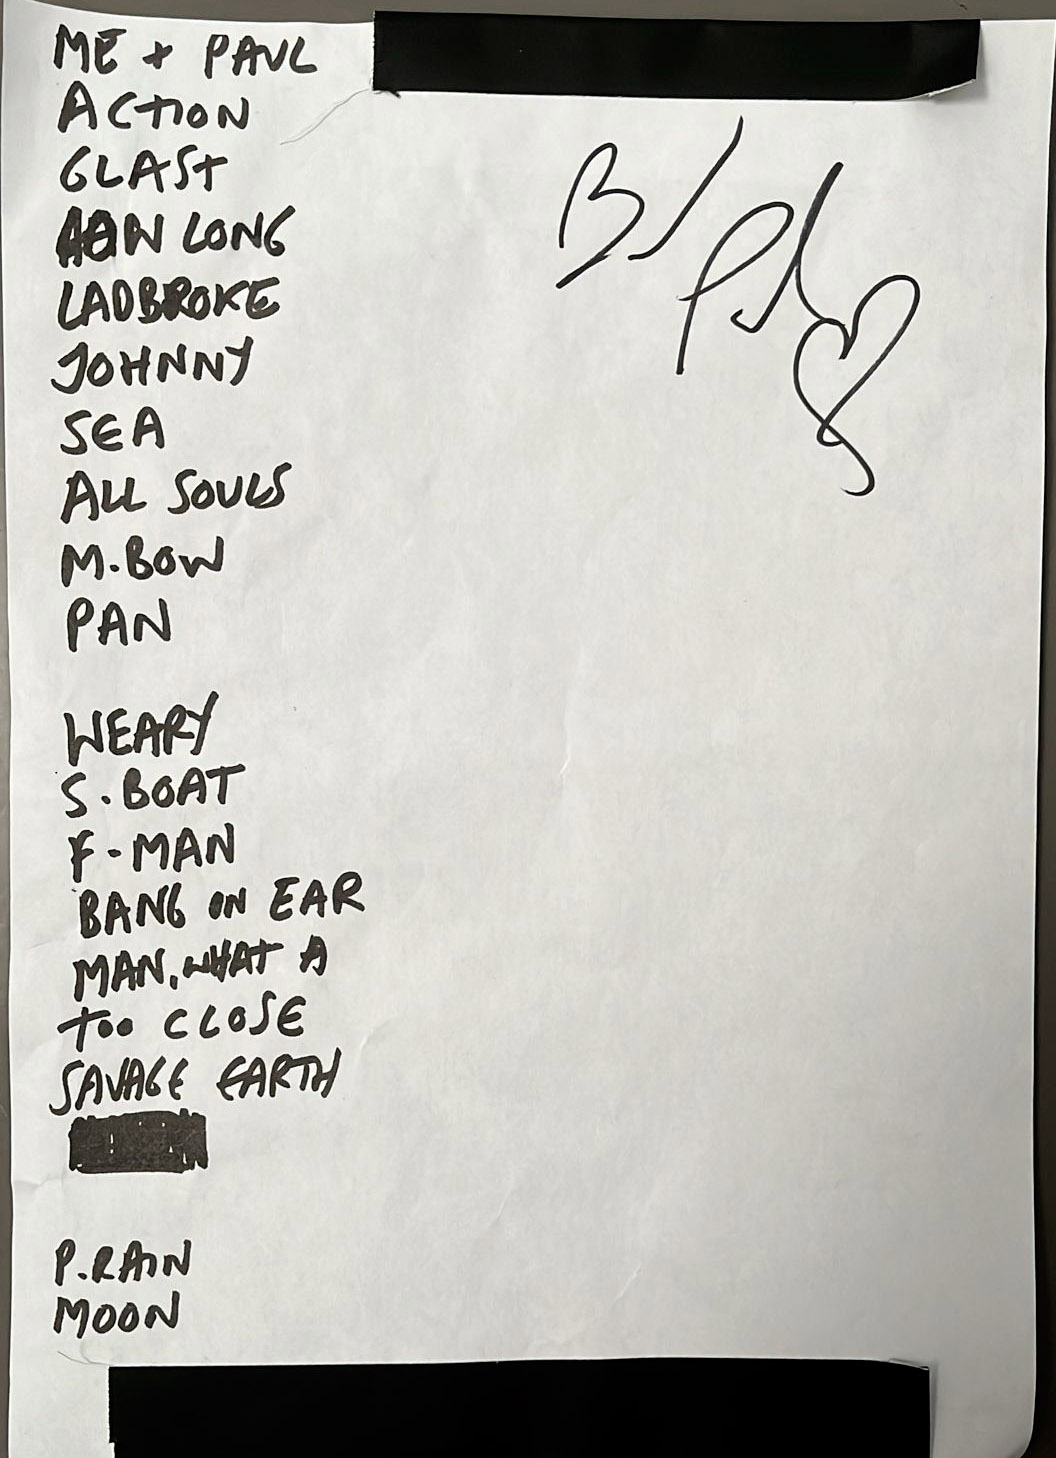 ME + PAUL
ACTION
GLAST
HOW LONG
LADBROKE
JOHNNY
SEA
ALL SOULS
M.BOW
PAN
WEARY
S.BOAT
F-MAN
BANG ON EAR
MAN, WHAT A
TOO CLOSE
SAVAGE EARTH
P.RAIN
MOON